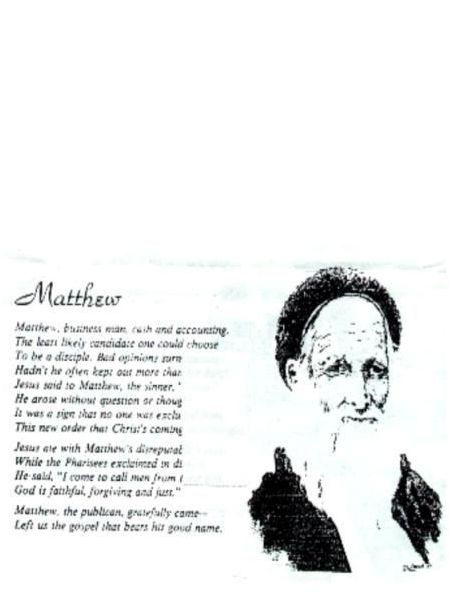 Matthew
Matthew, business man, cash and accounting.
The least likely candidate one could choose
To be a disciple. Bad opinions
Hadn't he often kept out more than
Jesus said to Matthew, the sinner,
He arose without question or
It was a sign that no one was
This new order that Christ's coming
Jesus ate with Matthew's
While the Pharisees exclaimed in
He said, "I come to call men from
God is faithful, forgiving and just."
Matthew, the publican, gratefully came--
Left us the gospel that bears his good name.